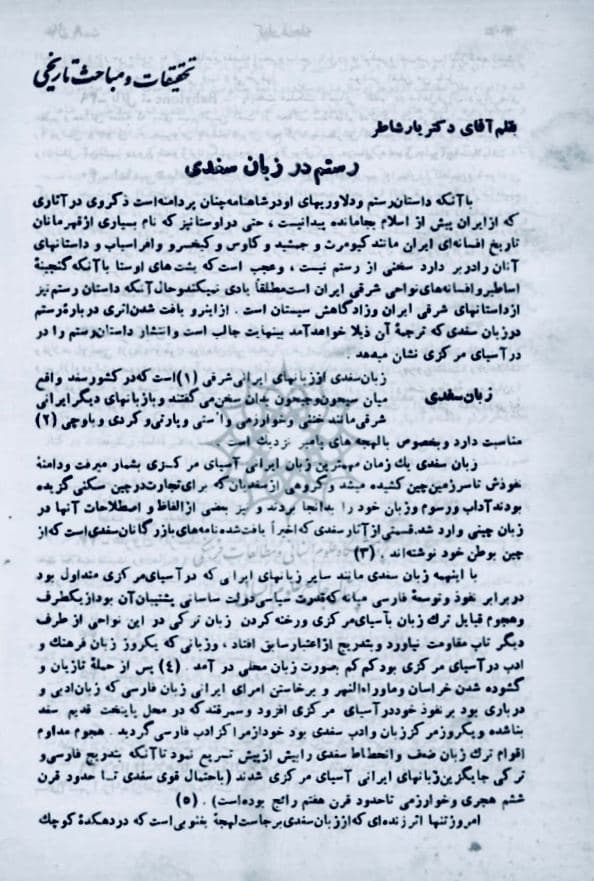 تحقیقات و مباحث تاریخی
بقلم آقای دکتر یارشاطر
رستم در زبان سغدی
با آنکه داستان رستم و دلاوریهای او در شاهنامه چنان پردامنه است ذکر وی در آثاری
که از ایران پیش از اسلام بجا مانده پیدا نیست ، حتی در اوستا نیز که نام بسیاری از قهرمانان
تاریخ افسانه‌ای ایران مانند کیومرث و جمشید و کاوس و کیخسرو و افراسیاب و داستانهای
آنان را در بر دارد سخنی از رستم نیست ، و عجب است که یشت های اوستا با آنکه گنجینهٔ
اساطیر و افسانه‌های نواحی شرقی ایران است مطلقاً یادی نمیکند و حال آنکه داستان رستم نیز
از داستانهای شرقی ایران و زادگاهش سیستان است . از اینرو یافت شدن اثری در بارهٔ رستم
در زبان سغدی که ترجمهٔ آن ذیلا خواهد آمد بینهایت جالب است و انتشار داستان رستم را در
در آسیای مرکزی نشان میدهد :
زبان سغدی
زبان سغدی از زبانهای ایرانی شرقی (۱) است که در کشور سغد واقع
میان سیحون و جیحون بدان سخن می گفتند و با زبانهای دیگر ایرانی
شرقی مانند ختنی و خوارزمی و استی و پارتی و کردی و بلوچی (۲)
مناسبت دارد و بخصوص با لهجه های پامیر نزدیك است .
زبان سغدی یك زمان مهمترین زبان ایرانی آسیای مرکزی بشمار میرفت و دامنهٔ
نفوذش تا سرزمین چین کشیده میشد و گروهی از سغدیان که برای تجارت در چین سکنی گزیده
بودند آداب و رسوم و زبان خود را به آنجا بردند و نیز بعضی از الفاظ و اصطلاحات آنها در
زبان چینی وارد شد. قسمتی از آثار سغدی که اخیراً یافت شده نامه های بازرگانان سغدی است که از
چین بوطن خود نوشته‌اند . (۳)
با اینهمه زبان سغدی مانند سایر زبانهای ایرانی که در آسیای مرکزی متداول بود
در برابر نفوذ و توسعهٔ فارسی میانه که قدرت سیاسی دولت ساسانی پشتیبان آن بود از یکطرف
و هجوم قبایل ترك زبان بآسیای مرکزی و رخنه کردن زبان ترکی در این نواحی از طرف
دیگر تاب مقاومت نیاورد و بتدریج از اعتبار سابق افتاد ، و زبانی که یکروز زبان فرهنگ و
ادب در آسیای مرکزی بود کم کم بصورت زبان محلی در آمد . (٤) پس از حملهٔ تازیان و
گشوده شدن خراسان و ماوراءالنهر و برخاستن امرای ایرانی زبان فارسی که زبان ادبی و
درباری بود بر نفوذ خود در آسیای مرکزی افزود و سمرقند که در محل پایتخت قدیم سغد
بنا شده و یکروز مرکز زبان و ادب سغدی بود خود از مراکز ادب فارسی گردید . هجوم مداوم
اقوام ترك زبان ضعف و انحطاط سغدی را بیش از پیش تسریع نمود تا آنکه بتدریج فارسی و
ترکی جایگزین زبانهای ایرانی آسیای مرکزی شدند (باحتمال قوی سغدی تا حدود قرن
ششم هجری و خوارزمی تا حدود قرن هفتم رائج بوده است) . (۵)
امروز تنها اثر زنده‌ای که از زبان سغدی برجاست لهجهٔ یغنوبی است که در دهکدهٔ کوچك